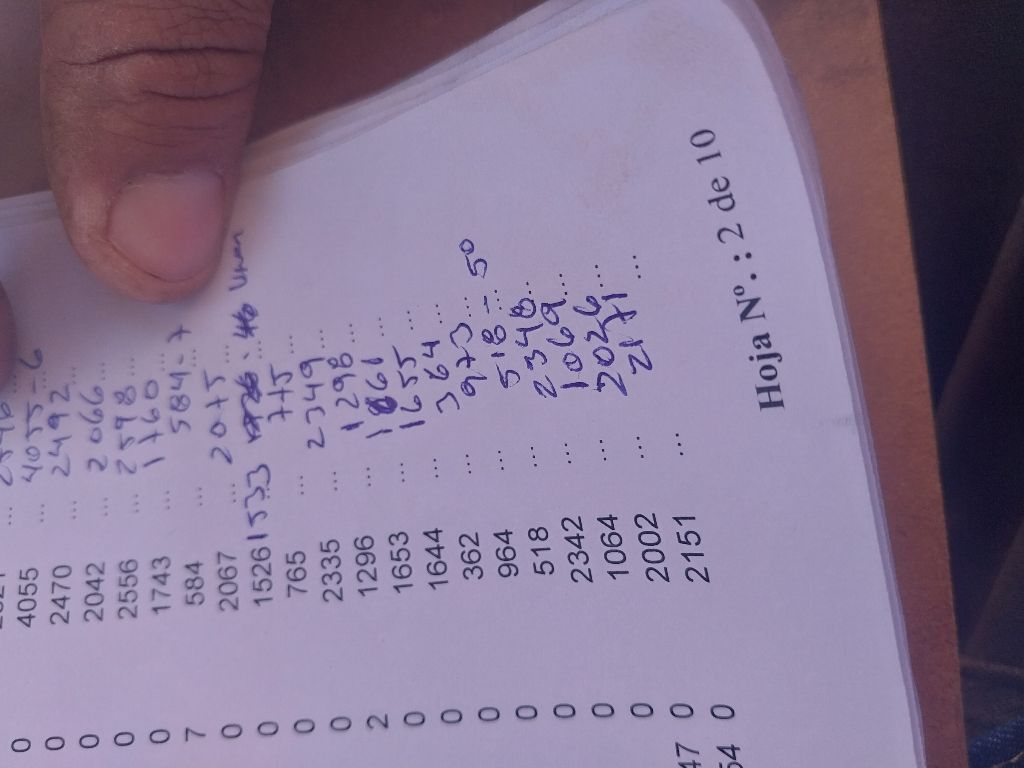 0 4055 ... 4055-6
0 2470 ... 2492 ...
0 2042 ... 2066 ...
0 2556 ... 2598 ...
0 1743 ... 1760 ...
7 584 ... 584-7
0 2067 ... 2075 ...
0 1526 1533
0 765 ...
0 2335 ... 2349 ...
2 1296 ... 1298 ...
0 1653 ... 1661 ...
0 1644 ... 1655 ...
0 362 ... 364 ...
0 964 ... 973 ...
0 518 ... 518-50
0 2342 ... 2348 ...
0 1064 ... 1069 ...
47 0 2002 ... 2026 ...
54 0 2151 ... 2171 ...
Hoja Nº.: 2 de 10